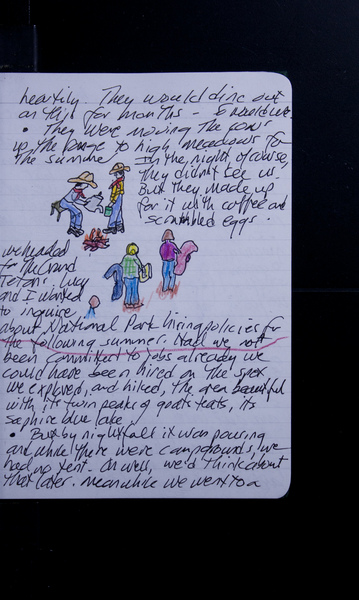 heartily. They would dine out
on this for months – so would we.
• They were moving the cows
up the range to high meadows for
the summer In the night, of course,
they didn't see us.
But they made up
for it with coffee and
scrambled eggs.
we headed
for the Grand
Tetons. Lucy
and I wanted
to inquire
about National Park hiring policies for
the following summer. Had we not
been committed to jobs already we
could have been hired on the spot
we explored, and hiked, the area beautiful
with its twin peaks of goats teats, its
saphire blue lake.
• But by nightfall it was pouring
and while there were campgrounds, we
had no tent. Oh well, we'd think about
that later. Meanwhile we went to a